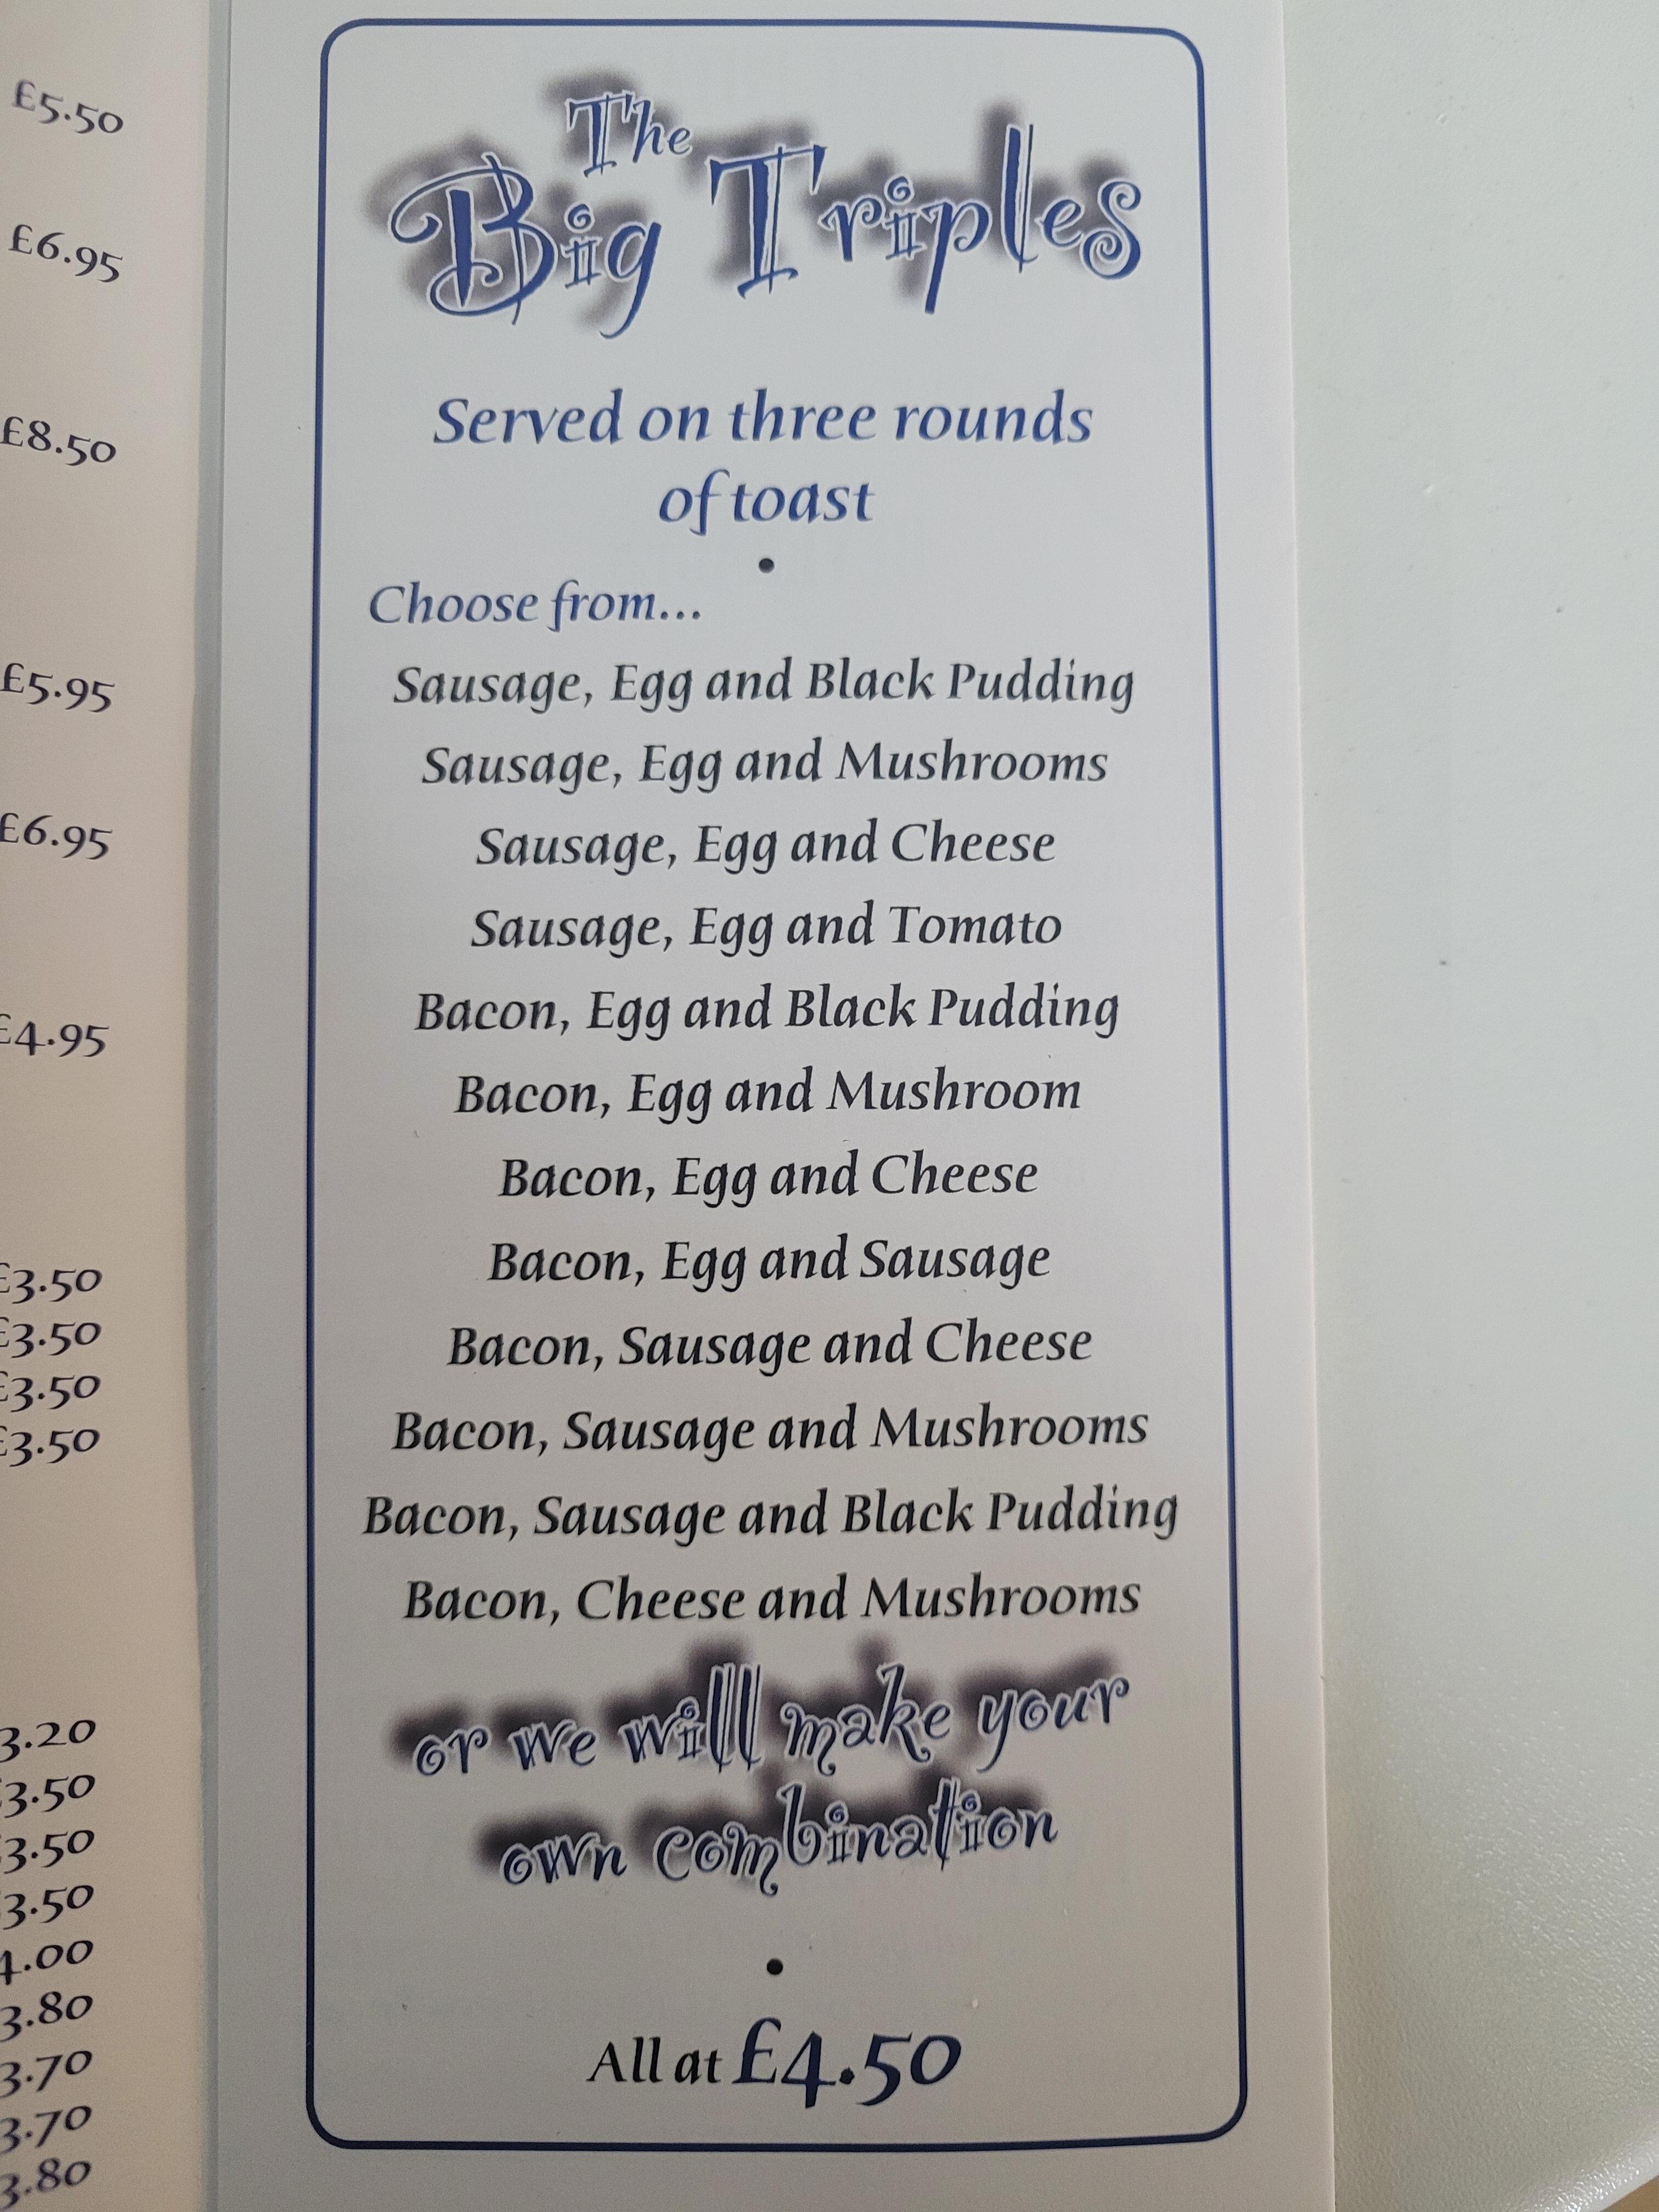 £5.50
£6.95
£8.50
£5.95
£6.95
£4.95
£3.50
£3.50
£3.50
£3.50
3.20
3.50
3.50
3.50
4.00
3.80
3.70
3.70
3.80
The
Big Triples
Served on three rounds
of toast
•
Choose from...
Sausage, Egg and Black Pudding
Sausage, Egg and Mushrooms
Sausage, Egg and Cheese
Sausage, Egg and Tomato
Bacon, Egg and Black Pudding
Bacon, Egg and Mushroom
Bacon, Egg and Cheese
Bacon, Egg and Sausage
Bacon, Sausage and Cheese
Bacon, Sausage and Mushrooms
Bacon, Sausage and Black Pudding
Bacon, Cheese and Mushrooms
or we will make your
own combination
•
All at £4.50